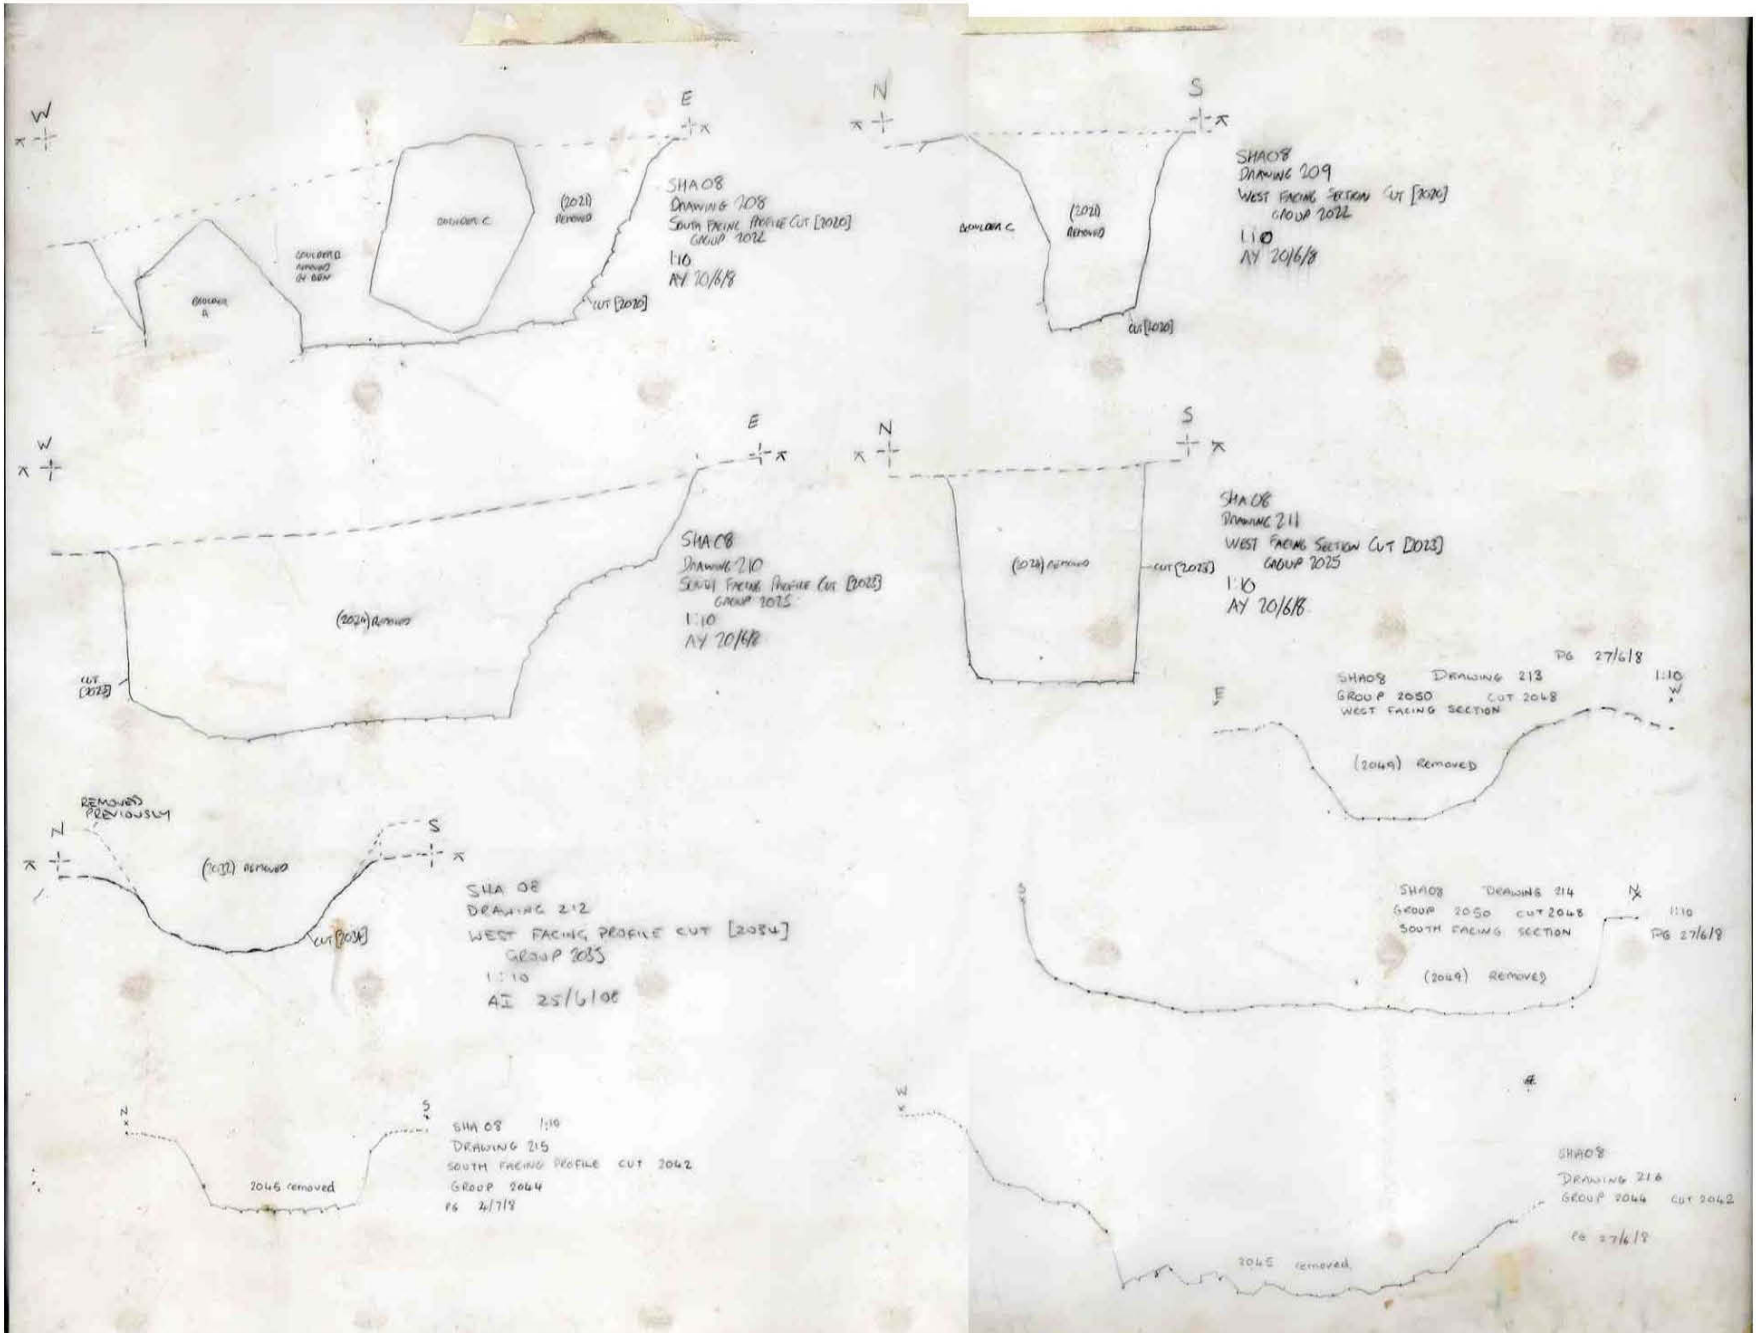 W
E
BOULDER A
BOULDER B
REMOVED
BY DBN
BOULDER C
(2021)
REMOVED
CUT [2020]
SHA08
DRAWING 208
SOUTH FACING PROFILE CUT [2020]
GROUP 2022
1:10
AY 20/6/8
N
S
BOULDER C
(2021)
REMOVED
CUT [2020]
SHA08
DRAWING 209
WEST FACING SECTION CUT [2020]
GROUP 2022
1:10
AY 20/6/8
W
E
(2024) REMOVED
CUT
[2023]
SHA08
DRAWING 210
SOUTH FACING PROFILE CUT [2023]
GROUP 2025
1:10
AY 20/6/8
N
S
(2024) REMOVED
CUT [2023]
SHA08
DRAWING 211
WEST FACING SECTION CUT [2023]
GROUP 2025
1:10
AY 20/6/8
REMOVED
PREVIOUSLY
N
S
(2032) REMOVED
CUT [2034]
SHA 08
DRAWING 212
WEST FACING PROFILE CUT [2034]
GROUP 2035
1:10
AI 25/6/08
PG 27/6/8
SHA08 DRAWING 213 1:10
GROUP 2050 CUT 2048
WEST FACING SECTION
E
W
(2049) REMOVED
S
N
SHA08 DRAWING 214
GROUP 2050 CUT 2048 1:10
SOUTH FACING SECTION PG 27/6/8
(2049) REMOVED
N
S
2045 removed
SHA 08 1:10
DRAWING 215
SOUTH FACING PROFILE CUT 2042
GROUP 2044
PG 2/7/8
W
E
2045 removed
SHA08
DRAWING 216
GROUP 2044 CUT 2042
PG 27/6/8